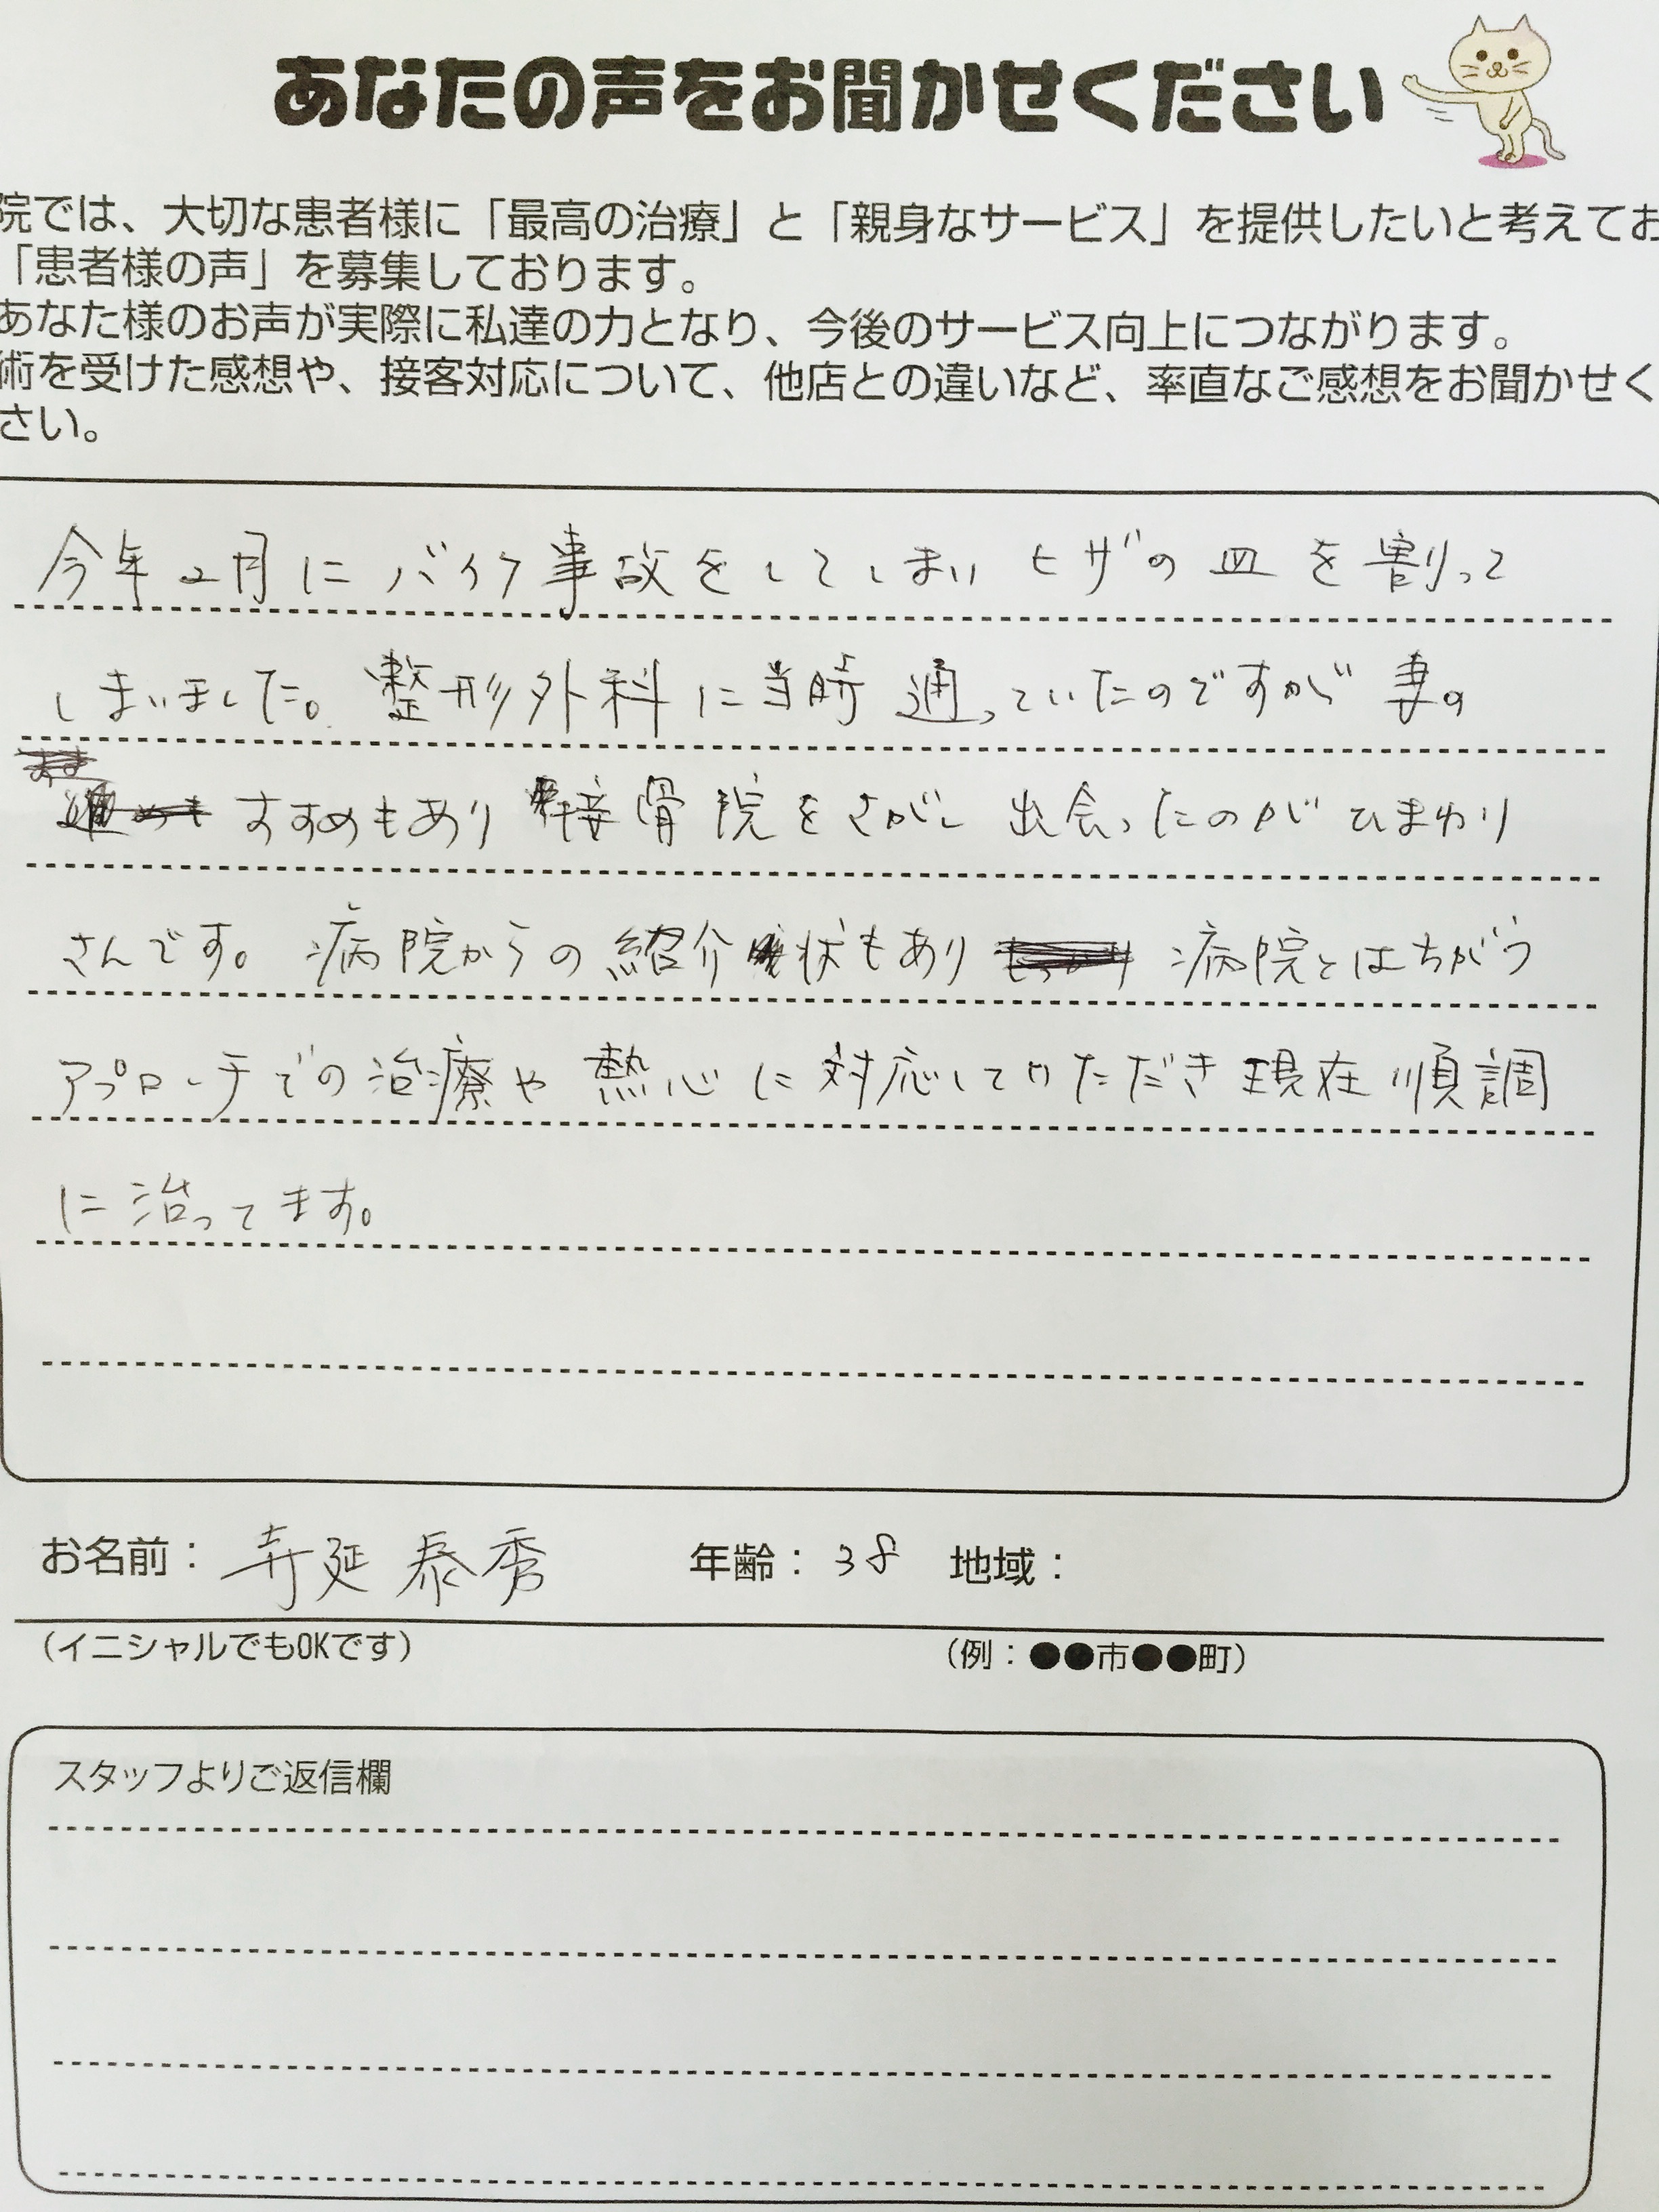 あなたの声をお聞かせください
院では、大切な患者様に「最高の治療」と「親身なサービス」を提供したいと考えてお
「患者様の声」を募集しております。
あなた様のお声が実際に私達の力となり、今後のサービス向上につながります。
術を受けた感想や、接客対応について、他店との違いなど、率直なご感想をお聞かせく
さい。
今年2月にバイク事故をしてしまいヒザの皿を割って
しまいました。整形外科に当時通っていたのですが妻の
すすめもあり接骨院をさがし出会ったのがひまわり
さんです。病院からの紹介状もあり病院とはちがう
アプローチでの治療や熱心に対応していただき現在順調
に治ってます。
お名前：寺延泰秀 年齢：38 地域：
(イニシャルでもOKです) (例：●●市●●町)
スタッフよりご返信欄